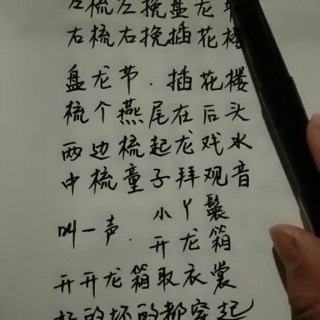 左梳左挽盘龙节
右梳右挽插花楼
盘龙节.插花楼
梳个燕尾在后头
两边梳起龙戏水
中梳童子拜观音
叫一声.小丫鬟
开龙箱
开开龙箱取衣裳
好的坏的都穿起